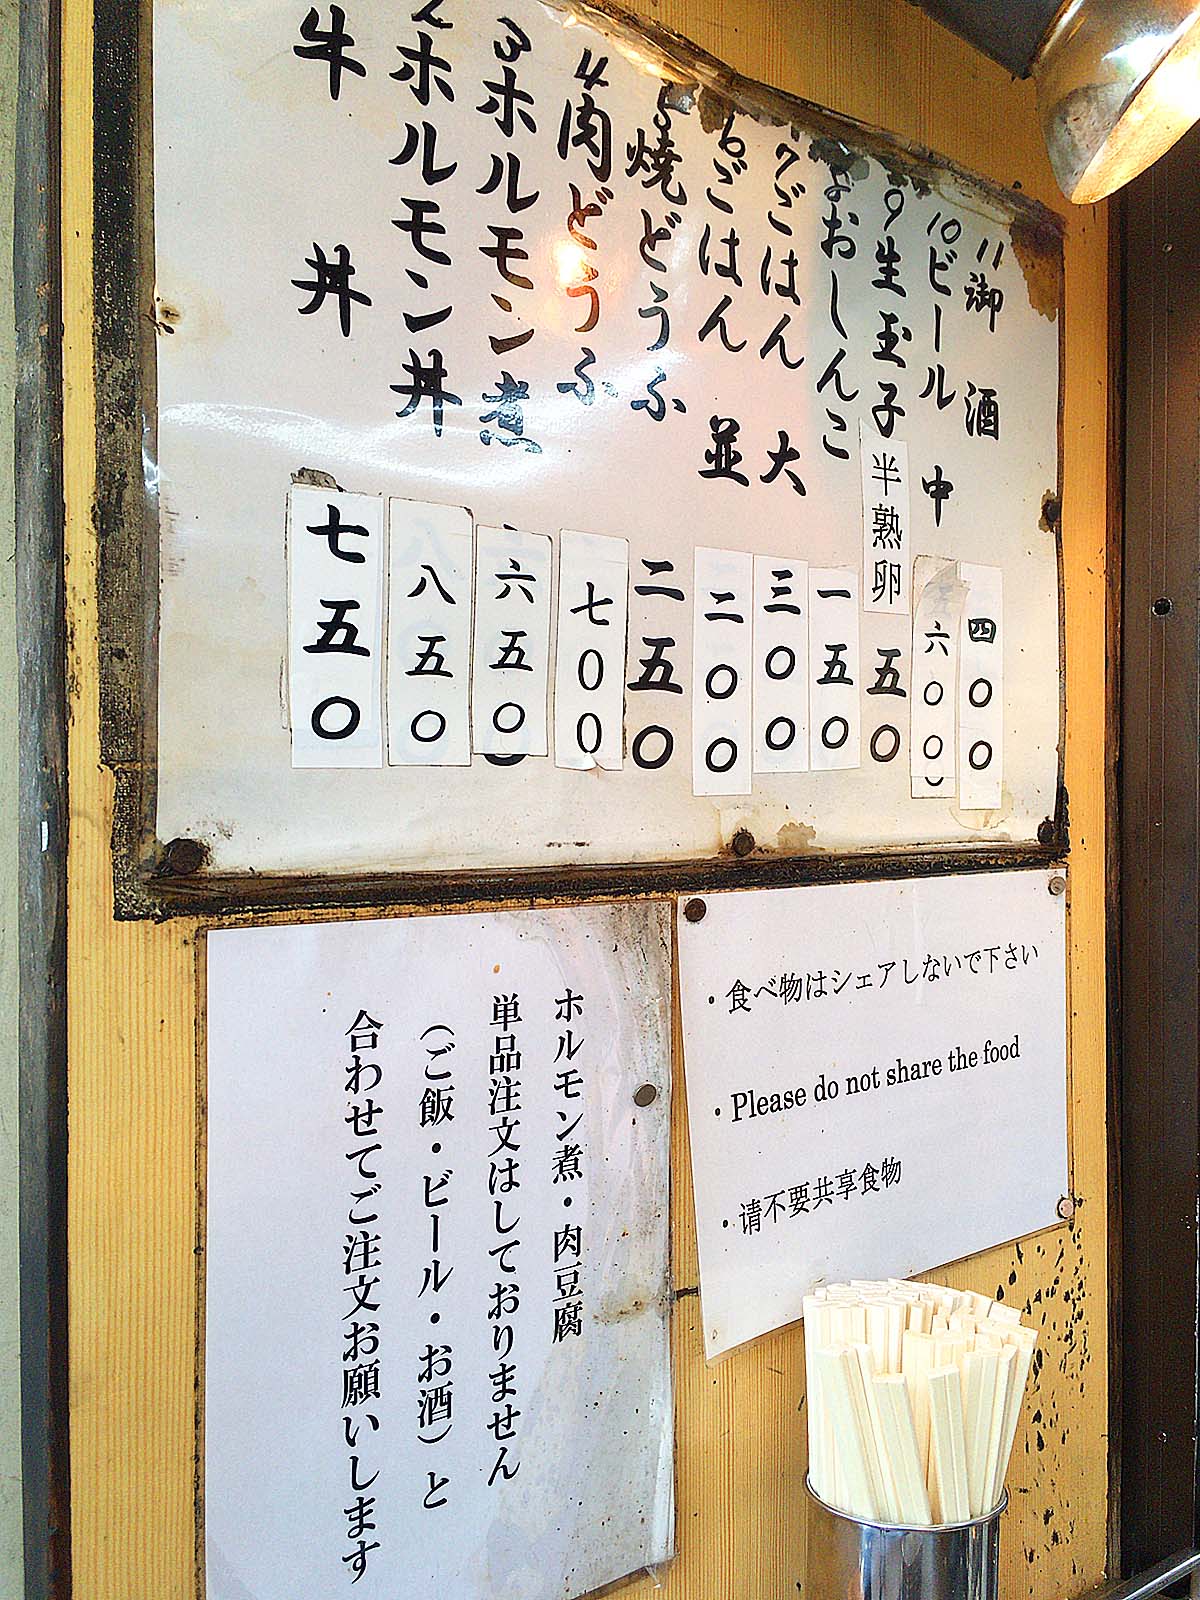 11御酒 四〇〇
10ビール 中 六〇〇
9生玉子 半熟卵 五〇
おしんこ 一五〇
7ごはん 大 三〇〇
6ごはん 並 二〇〇
5焼どうふ 二五〇
4肉どうふ 七〇〇
3ホルモン煮 六五〇
2ホルモン丼 八五〇
牛丼 七五〇
・食べ物はシェアしないで下さい
・Please do not share the food
・请不要共享食物
ホルモン煮・肉豆腐
単品注文はしておりません
（ご飯・ビール・お酒）と
合わせてご注文お願いします